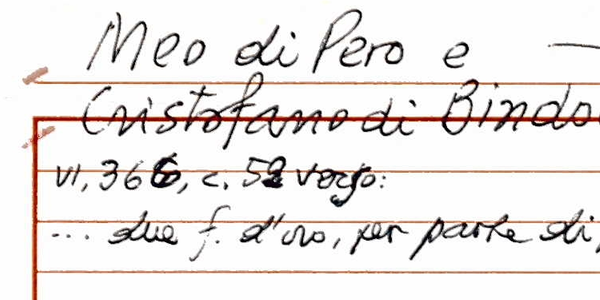 Meo di Pero e
Cristofano di Bindo
VI, 366, c. 52 verso:
... due f. d'oro, per parte di